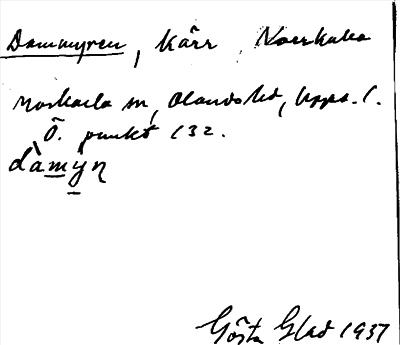 Dammyren, Kärr, Norrkala
Morkarla sn, Olands hd, Upps. l.
Ö. punkt 132.
dàmỳn
Gösta Glad 1937